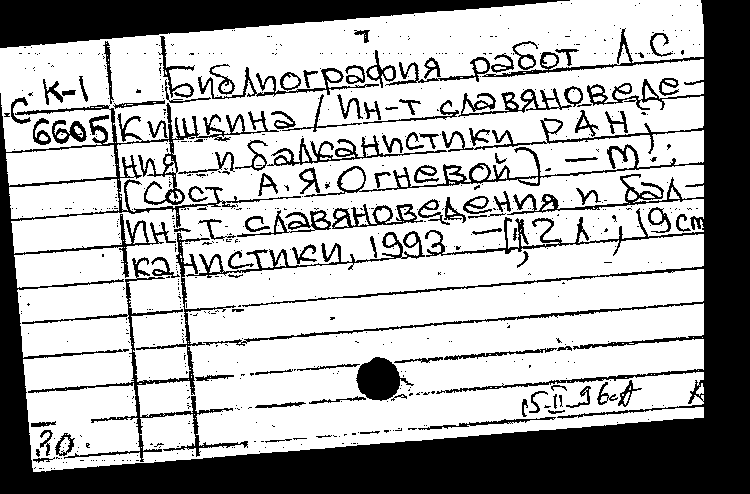 7
К-1
С 6605
Библиография работ Л.С.
Кишкина / Ин-т славяноведе-
ния и балканистики РАН;
[Сост. А.Я.Огневой]. — М.:
Ин-т славяноведения и бал-
канистики, 1993. — 12 л.; 19 cm
15.II.96
30.